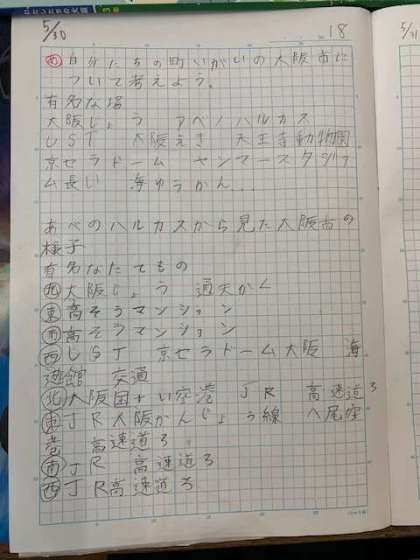 5/30
18
め 自分たちの町いがいの大阪市に
ついて考えよう。
有名な場
大阪じょう アベノハルカス
USJ 大阪えき 天王寺動物園
京セラドーム ヤンマースタジア
ム長い 海ゆうかん...
あべのハルカスから見た大阪市の
様子
有名なたてもの
北 大阪じょう 通天かく
東 高そうマンション
南 高そうマンション
西 USJ 京セラドーム大阪 海
遊館 交通
北 大阪国さい空港 JR 高速道ろ
東 JR大阪かんじょう線 八尾空
港 高速道ろ
南 JR 高速道ろ
西 JR高速道ろ
5/31